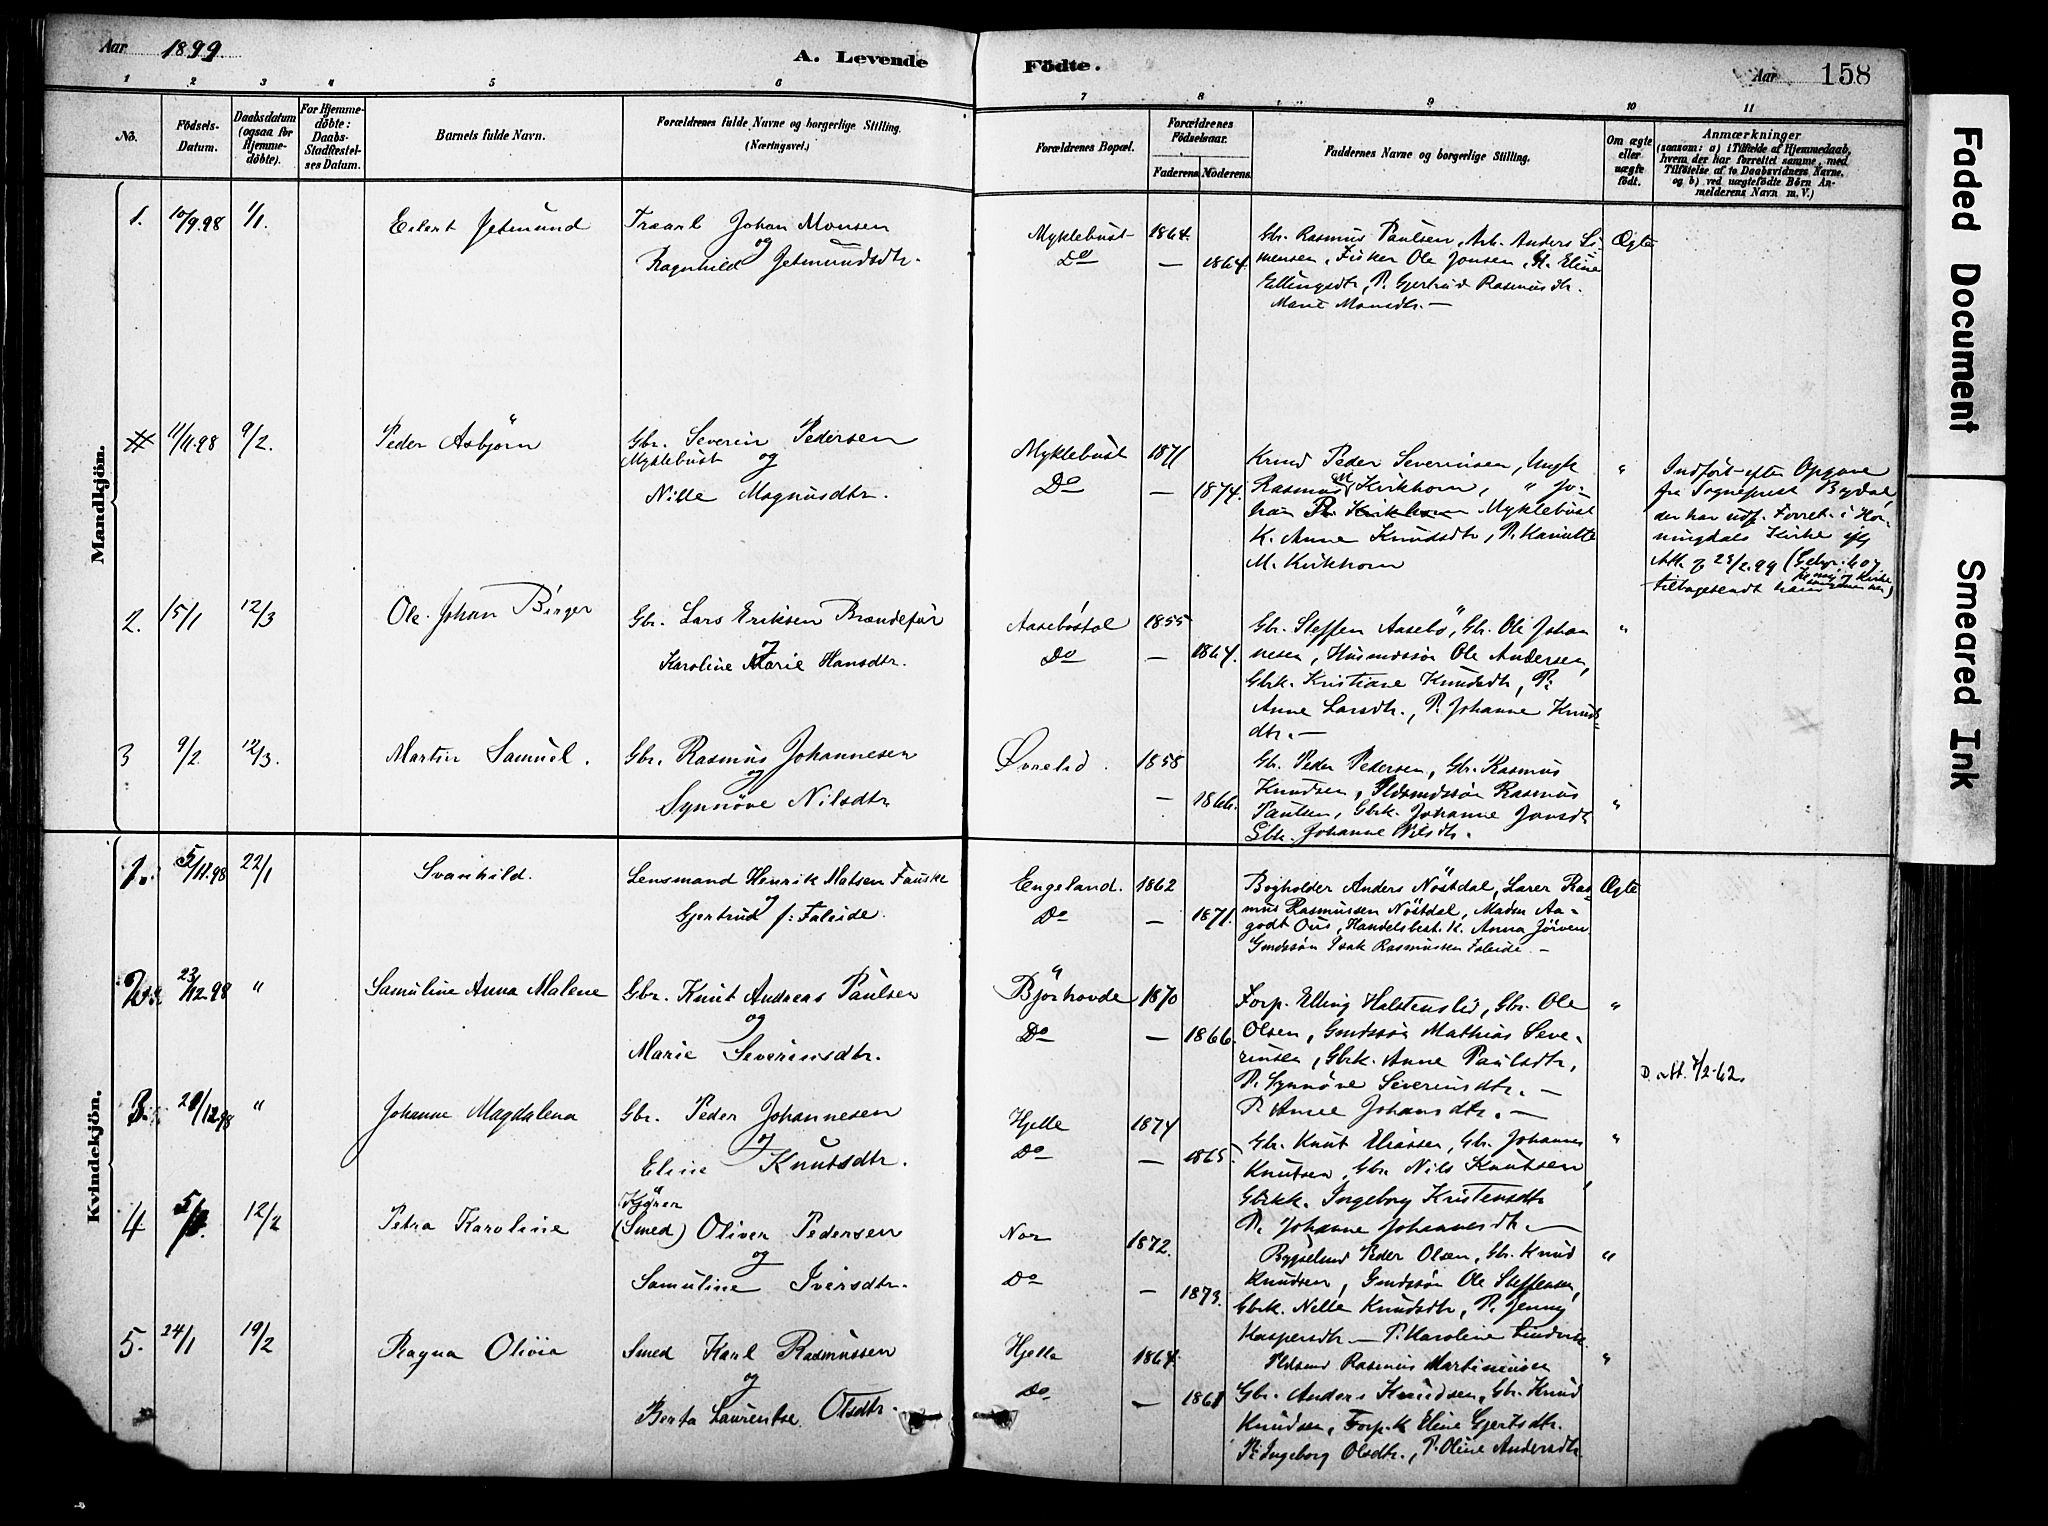 Aar 1899
A. Levende Födte.
Aar 158
1 2 3 4 5 6 7 8 9 10 11
No.
Födsels-
Datum.
Daabsdatum
(ogsaa for
Hjemme-
döbte).
For Hjemme-
döbte:
Daabs-
Stadfæstel-
ses Datum.
Barnets fulde Navn.
Forældrenes fulde Navne og borgerlige Stilling.
(Næringsvei.)
Forældrenes Bopæl.
Forældrenes
Födselsaar.
Faderens Moderens
Faddernes Navne og borgerlige Stilling.
Om ægte
eller
uægte
födt.
Anmærkninger
(saasom: a) i Tilfælde af Hjemmedaab,
hvem der har forrettet samme, med
Tilföielse af to Daabsvidners Navne,
og b) ved uægtefödte Börn An-
melderens Navn m. V.)
Mandkjön.
1. 10/9.98 1/1. Eilert Jetmund
Traarl Johan Monsen
og
Ragnhild Jetmundsdtr.
Myklebust 1864.
Do — 1864.
Gbr. Rasmus Paulsen, Arb. Anders Si-
mensen, Fisker Ole Jonsen, K. Eline
Ellingsdtr, P. Gjertrud Rasmusdtr.
Marie Monsdtr. —
Ægte
11/11.98 9/2. Peder Asbjörn
Gbr. Severin Pedersen
Myklebust og
Nille Magnusdtr.
Myklebust 1871
Do — 1874.
Krud Peder Severinsen, Ungk
Rasmus M Kirkhorn, " Jo-
han Myklebust
K. Anne Knudsdtr, P.
M. Kirkhorn
"
Indført efter Opgave
fra Sogneprest Bydal,
der har udf. Forret. i Hor-
ningdals Kirke iflg
Att. 23/2.99 (Gebyr
tilbagesendt ham
2. 15/1 12/3 Ole Johan Birger
Gbr. Lars Eriksen Brandefur
og
Karoline Marie Hansdtr.
Aasebøstøl 1855
Do — 1864.
Gbr. Steffen Aasebö, Gbr. Ole Johan
nesen, Husmdssön Ole Andersen,
Gbrk. Kristiane Knudsdtr, P.
Anne Larsdtr., P. Johanne Knuds-
dtr. —
"
3 9/2 12/3. Martin Samuel.
Gbr. Rasmus Johannesen
og
Synnöve Nilsdtr
Øvrelid. 1858
— 1866.
Gbr. Peder Pedersen, Gbr. Rasmus
Knudsen, Pldsmdssön Rasmus
Paulsen, Gbrk. Johanne Jonsdtr
Gbrk. Johanne Nilsdtr.
"
Kvindekjön.
1. 5/11.98 22/1 Svanhild.
Lensmand Henrik Matsen Fauske
og
Gjertrud f: Faleide.
Engeland. 1862
Do — 1871.
Bogholder Anders Nöstdal, Lærer Ras-
mus Rasmussen Nöstdal, Madm Aa-
godt Ous, Handelsbest. K. Anna Jörven
Gmdssön Isak Rasmussen Faleide —
Ægte
2. 23/12.98 " Samuline Anna Malene
Gbr. Knut Andreas Paulsen
og
Marie Severinsdtr.
Björhovde 1870
Do — 1866.
Forp. Elling Halstenslid, Gbr. Ole
Olsen, Gmdssön Mathias Seve-
rinsen, Gbrk. Anne Paulsdtr,
P. Synnöve Severinsdtr. —
P. Anne Johansdtr. —
"
D. Att. 7/2-62.
3. 28/12.98 " Johanne Magdalena
Gbr. Peder Johannesen
og
Eline Knutsdtr.
Hjelle 1874
Do — 1865.
Gbr. Knut Eliassen, Gbr. Johannes
Knutsen, Gbr Nils Knutsen,
Gbrkk. Ingeborg Kristensdtr
P. Johanne Johannesdtr. —
"
4. 5/1. 12/2 Petra Karoline
Kjörer
(Smed) Oliver Pedersen
og
Samuline Iversdtr.
Nor 1872.
Do — 1873.
Bygselmd Peder Olsen, Gbr. Knud
Knudsen, Gmdssön Ole Steffensen,
Gbrk. Nelle Knudsdtr, P. Jenny
Kaspersdtr — P. Karoline Lindvik
"
5. 24/1 19/2 Ragna Olivia
Smed Karl Rasmussen
og
Berta Laurentse Olsdtr.
Hjelle 1864.
Do — 1861
Pldsmd Rasmus Martinussen
Gbr. Anders Knudsen, Gbr. Knud
Knudsen, Forp.k Eline Gjertsdtr.
P. Ingeborg Olsdtr., P. Oline Andersdtr
"
Faded Document
Smeared Ink